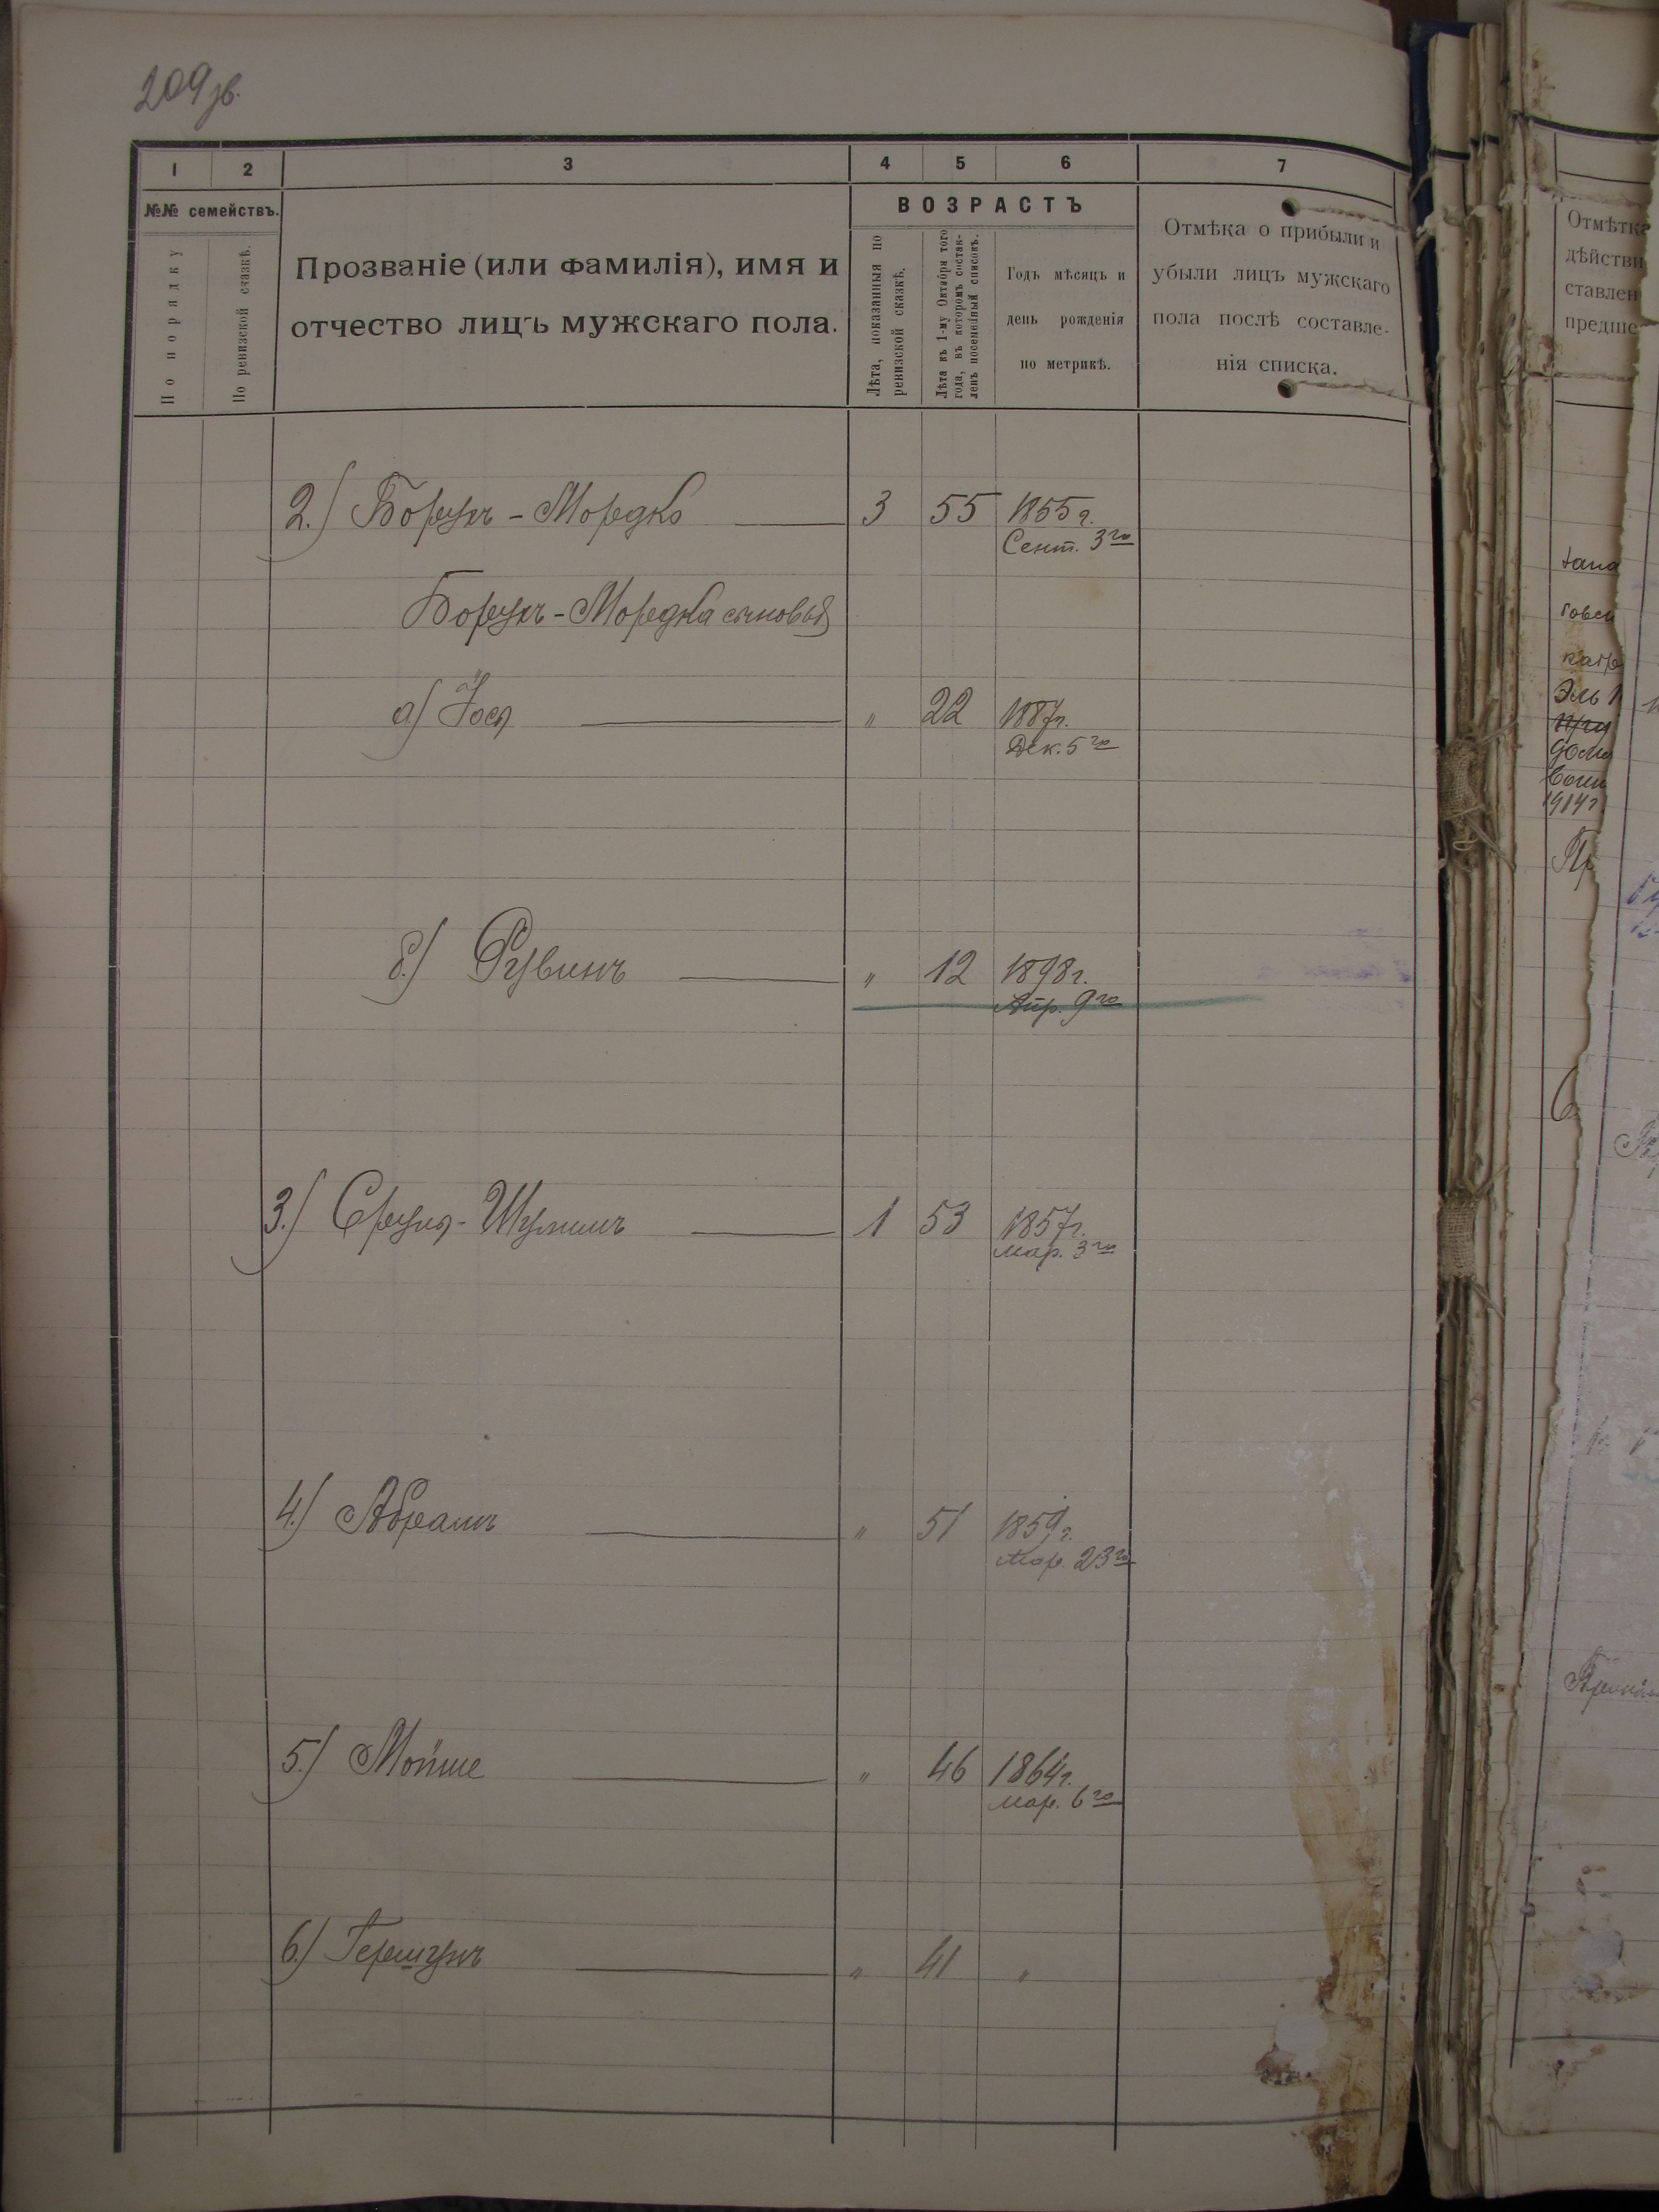 209 зв.
1 2 3 4 5 6 7
№№ семействъ.
По порядку
По ревизской сказкѣ.
Прозваніе (или фамилія), имя и
отчество лицъ мужскаго пола.
ВОЗРАСТЪ
Лѣта, показанныя по
ревизской сказкѣ.
Лѣта къ 1-му Октября того
года, въ которомъ состав-
ленъ посемейный списокъ.
Годъ мѣсяцъ и
день рожденія
по метрикѣ.
Отмѣка о прибыли и
убыли лицъ мужскаго
пола послѣ составле-
нія списка.
2.) Борухъ-Мордко 3 55 1855 г.
Сент. 3го
Борухъ-Мордка сыновья
а) Іося " 22 1887 г.
Дек. 5го
б.) Рувинъ " 12 1898 г.
Апр. 9го
3.) Сруля-Шулимъ 1 53 1857 г.
Мар. 3го
4.) Абрамъ " 51 1859 г.
Мар. 23го
5.) Мойше " 46 1864 г.
Мар. 6го
6.) Гершунъ " 41 "
Отмѣтк
дѣйстви
ставлен
предше
Эль
1914 г
Пр